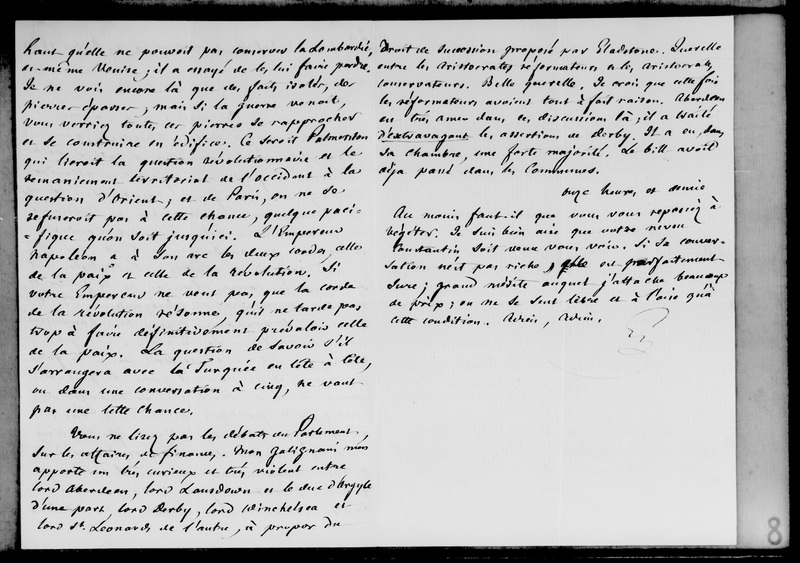 haut qu'elle ne pouvoit pas conserver la Lombardie,
ni même Venise ; il a essayé de les lui faire perdre.
Je ne vois encore là que des faits isolés, des
pierres éparses ; mais si la guerre venoit,
vous verriez toutes ces pierres se rapprocher
et se construire en édifice. Ce seroit Palmerston
qui lieroit la question révolutionnaire et le
remaniement territorial de l'occident à la
question d'Orient ; et de Paris, on ne se
refuseroit pas à cette chance, quelque paci-
-fique qu'on soit jusqu'ici. L'Empereur
Napoléon a à son arc les deux cordes, celle
de la paix et celle de la révolution. Si
votre Empereur ne veut pas que la corde
de la révolution résonne, qu'il ne tarde pas
trop à faire définitivement prévaloir celle
de la paix. La question de savoir s'il
s'arrangera avec la Turquie en tête à tête,
ou dans une conversation à cinq, ne vaut
pas une telle chance.
Vous ne lisez pas les débats du Parlement,
sur les affaires de finances. Mon Galignani m'en
apporte un très curieux et très violent entre
lord Aberdeen, lord Lansdown et le duc d'Argyle
d'une part, lord Derby, lord Winchelsea et
lord St Leonards de l'autre, à propos du
Droit de succession proposé par Gladstone. Querelle
entre les aristocrates réformateurs et les aristocrates
conservateurs. Belle querelle. Je crois que cette fois
les réformateurs avoient tout à fait raison. Aberdeen
est très amer dans ces discussions là ; il a traité
d'extravagant les assertions de Derby. Il a eu, dans
sa chambre, une forte majorité. Le bill avoit
déja passé dans les Communes.
onze heures et demie
Au moins faut-il que vous vous reposiez à
végéter. Je suis bien aise que votre neveu
Constantin soit venu vous voir. Si sa conver-
sation n'est pas riche, elle est parfaitement
sure ; grand mérite auquel j'attache beaucoup
de prix ; on ne se sent libre et à l'aise qu'à
cette condition. Adieu, Adieu.
8